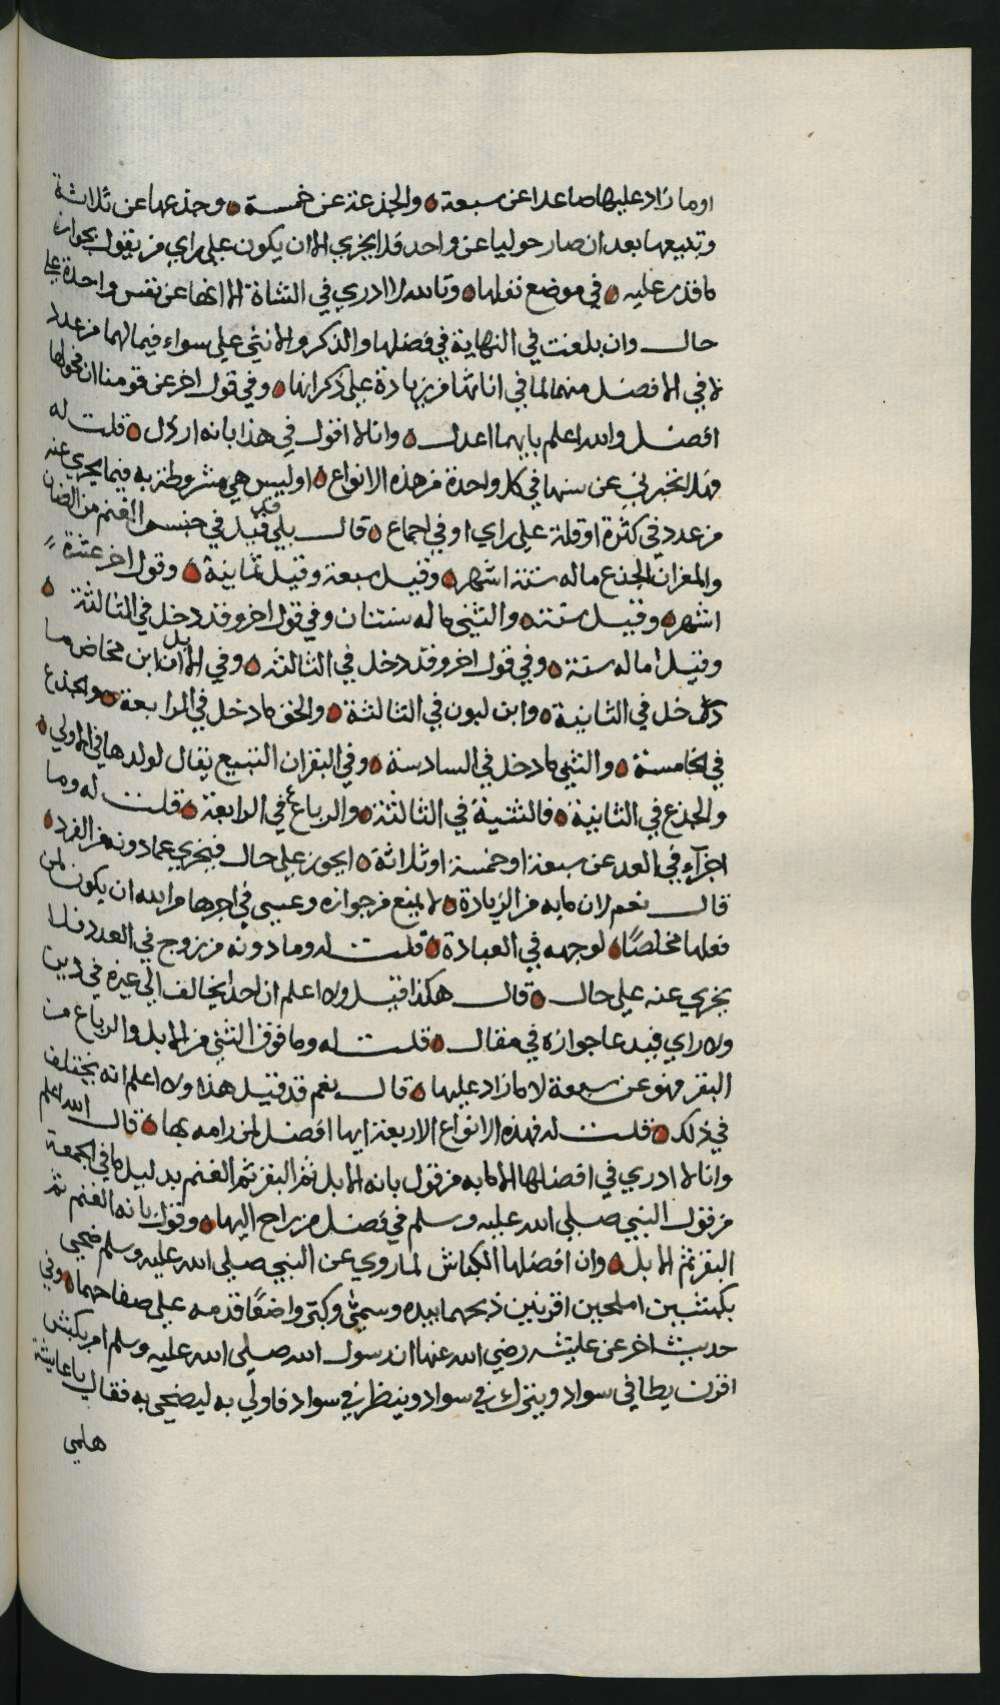 او ما زاد عليها صاعدا عن سبعة والجذعة عن خمسة وجذعها عن ثلاثة
وتبيعها بعد ان صار حوليا عن واحد قد ايجزي الا ان يكون على راي من يقول بجوازه
ما قدر عليه في موضع نفلها وتالله لا ادري في الشاة الا انها عن نفس واحدة على
حال وان بلغت في النهاية في فضلها والذكر والانثى على سواء فيما لهما من عدد
لا في الافضل منهما لما في اناثها من زيادة على ذكرانها وفي قول اخر عن قومنا ان فحولها
افضل والله اعلم بايهما اعدل وانا لا اقول في هذا بانه ارذل قلت له
فهلا تخبرني عن سنها في كل واحدة من هذه الانواع اوليس هي مشروطة به فيما يجزي عنه
من عدد في كثرة او قلة على راي او في اجماع قال بلى قد قيل في جنس الغنم من الضان
والمعز ان الجذع ما له ستة اشهر وقيل سبعة وقيل ثمانية وقول اخر عشرة
اشهر وقيل سنة والثني ما له سنتان وفي قول اخر وقد دخل في الثالثة
وقيل ما له سنة وفي قول اخر وقد دخل في الثالثة وفي الابل ان ابن مخاض ما
دخل في الثانية وابن لبون في الثالثة والحق ما دخل في الرابعة والجذع
في الخامسة والثني ما دخل في السادسة وفي البقر ان التبيع يقال لولدها في الاولى
والجذع في الثانية فالثنية في الثالثة والرباع في الرابعة قلت له وما
اجزاء في العد عن سبعة او خمسة او ثلاثة ايجوز على حال فيجزي عما دونه من الفرد
قال نعم لان ما به من الزيادة لا يمنع من جوازه وعسى في اجرها من الله ان يكون لمن
فعلها مخلصا لوجهه في العبادة قلت له وما دونه من زوج في العدد فلا
يجزي عنه على حال قال هكذا قيل ولا اعلم ان احدا يخالف الى غيره في دين
ولا راي فيدعا جوازه في مقال قلت له وما فوق الثني من الابل والرباع من
البقر فهو عن سبعة لا ما زاد عليها قال نعم قد قيل هذا ولا اعلم انه يختلف
في ذلك قلت له فهذه الانواع الاربعة ايها افضل لمن رامه بها قال الله اعلم
وانا لا ادري في افضلها الا ما به من قول بانه الابل ثم البقر ثم الغنم بدليل ما في الجمعة
من قول النبي صلى الله عليه وسلم في فضل من راح اليها وقول بانه الغنم ثم
البقر ثم الابل وان افضلها الكباش لما روي عن النبي صلى الله عليه وسلم ضحى
بكبشين املحين اقرنين ذبحهما بيده وسمى وكبر واضعًا قدمه على صفاحهما وفي
حديث اخر عن عايشه رضي الله عنها ان رسول الله صلى الله عليه وسلم امر بكبش
اقرن يطا في سواد ويبرك في سواد وينظر في سواد فاولي به ليضحي به فقال يا عايشة
هلمي